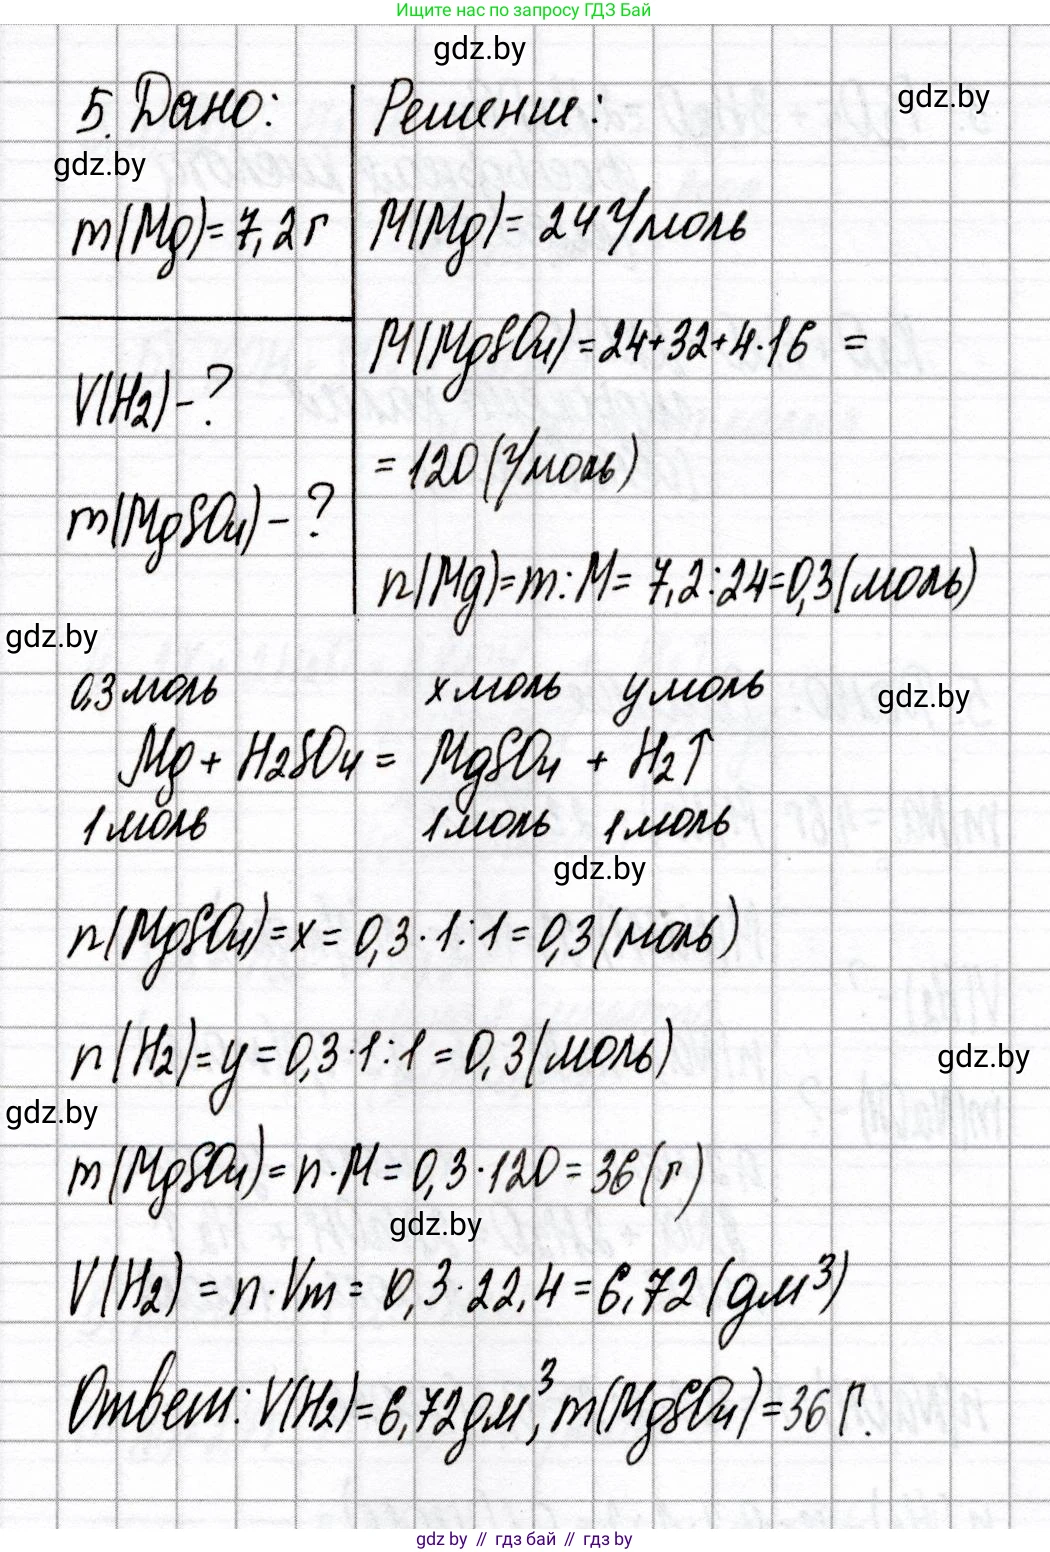 Ищите нас по запросу ГДЗ Бай
gdz.by
5. Дано:
Решение:
gdz.by
gdz.by
m(Mg)=7,2 г
M(Mg)= 24 г/моль
M(MgSO4)=24+32+4·16 =
V(H2)-?
= 120(г/моль)
m(MgSO4)-?
n(Mg)=m:M= 7,2:24=0,3(моль)
gdz.by
0,3 моль x моль y моль
gdz.by
Mg + H2SO4 = MgSO4 + H2↑
1 моль 1 моль 1 моль
gdz.by
n(MgSO4)=x= 0,3·1:1=0,3(моль)
n(H2)=y=0,3·1:1=0,3(моль)
gdz.by
gdz.by
m(MgSO4)=n·M=0,3·120=36(г)
gdz.by
V(H2)=n·Vm=0,3·22,4=6,72(дм³)
Ответ: V(H2)=6,72дм³, m(MgSO4)=36 г.
gdz.by // гдз бай // gdz.by